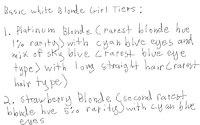 Basic white Blonde Girl Tiers:
1. Platinum Blonde (rarest blonde hue
1% rarity) with cyan blue eyes and
mix of sky blue (rarest blue eye
type) with long straight hair (rarest
hair type)
2. strawberry Blonde (second rarest
blonde hue 5% rarity) with cyan blue
eyes